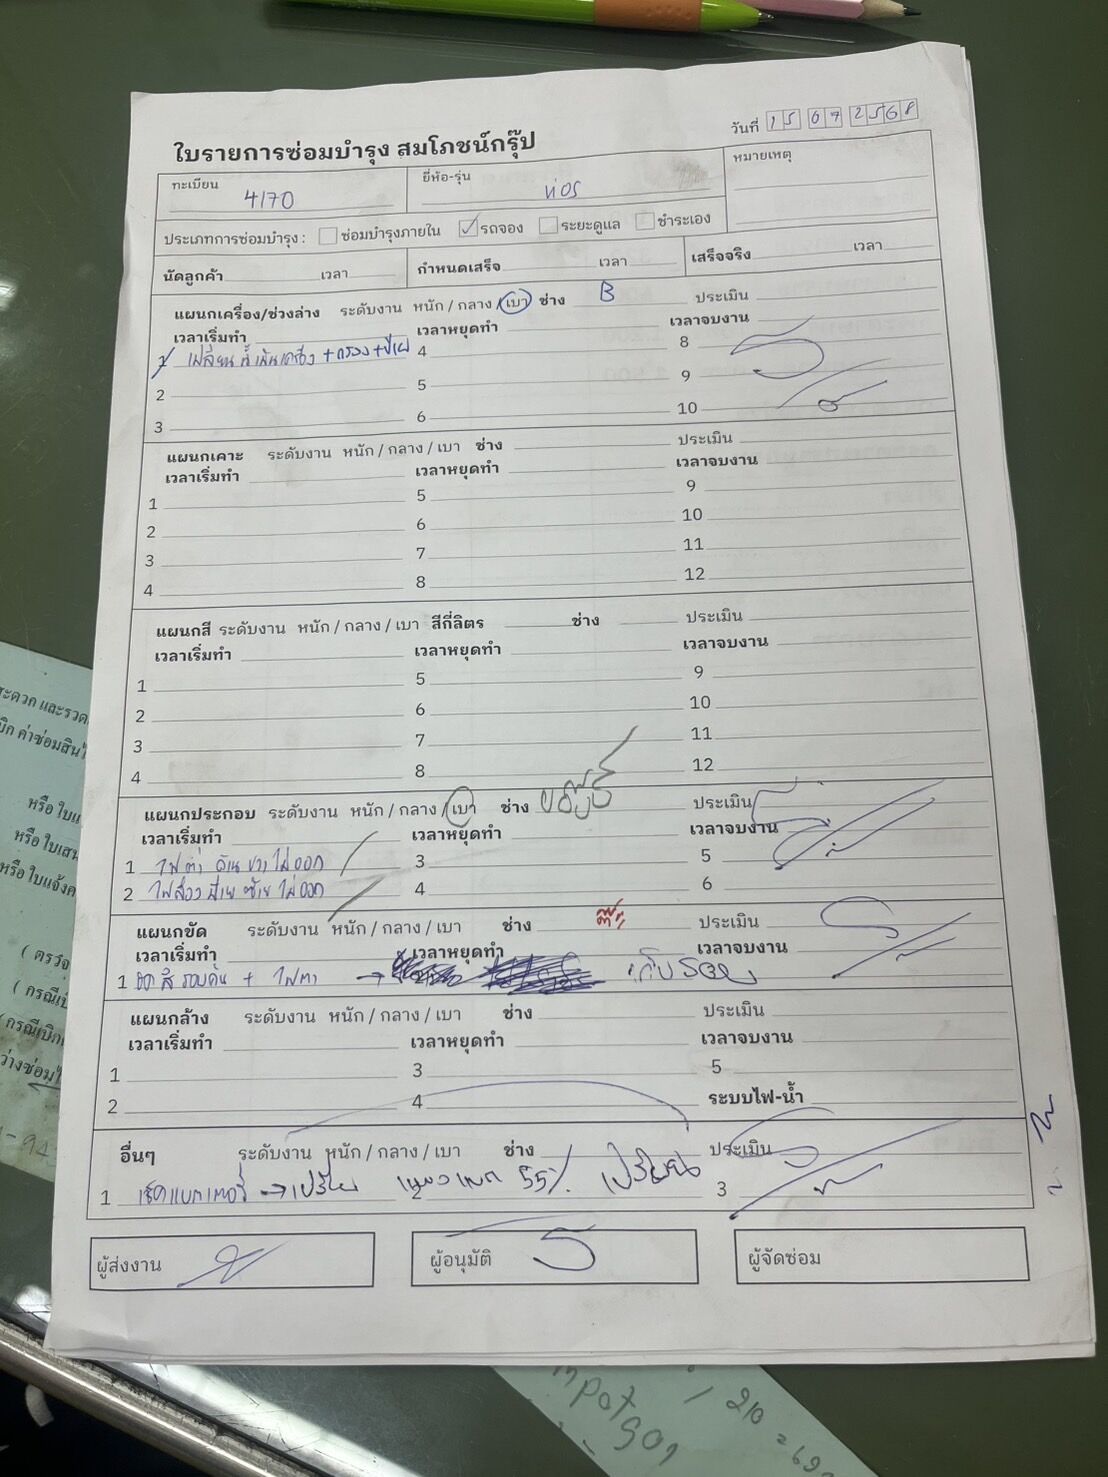 วันที่ 15 07 2568
ใบรายการซ่อมบำรุง สมโภชน์กรุ๊ป
ทะเบียน 4170 ยี่ห้อ-รุ่น vios หมายเหตุ
ประเภทการซ่อมบำรุง : ซ่อมบำรุงภายใน ✓ รถจอง ระยะดูแล ชำระเอง
นัดลูกค้า เวลา กำหนดเสร็จ เวลา เสร็จจริง เวลา
แผนกเครื่อง/ช่วงล่าง ระดับงาน หนัก / กลาง / เบา ช่าง B ประเมิน
เวลาเริ่มทำ เวลาหยุดทำ เวลาจบงาน
1 เปลี่ยนน้ำมันเครื่อง + กรอง 4 8
2 5 9
3 6 10
แผนกเคาะ ระดับงาน หนัก / กลาง / เบา ช่าง ประเมิน
เวลาเริ่มทำ เวลาหยุดทำ เวลาจบงาน
1 5 9
2 6 10
3 7 11
4 8 12
แผนกสี ระดับงาน หนัก / กลาง / เบา สีกี่ลิตร ช่าง ประเมิน
เวลาเริ่มทำ เวลาหยุดทำ เวลาจบงาน
1 5 9
2 6 10
3 7 11
4 8 12
แผนกประกอบ ระดับงาน หนัก / กลาง / เบา ช่าง ประเมิน
เวลาเริ่มทำ เวลาหยุดทำ เวลาจบงาน
1 ไฟต่ำ ด้านขวาไม่ออก 3 5
2 ไฟส่องป้าย ซ้าย ไม่ออก 4 6
แผนกขัด ระดับงาน หนัก / กลาง / เบา ช่าง ประเมิน
เวลาเริ่มทำ เวลาหยุดทำ เวลาจบงาน
1 ขัดสีรอบคัน + ไฟตา → เก็บรอย
แผนกล้าง ระดับงาน หนัก / กลาง / เบา ช่าง ประเมิน
เวลาเริ่มทำ เวลาหยุดทำ เวลาจบงาน
1 3 5
2 4 ระบบไฟ-น้ำ
อื่นๆ ระดับงาน หนัก / กลาง / เบา ช่าง ประเมิน
1 เช็คแบตเตอรี่ → 55% เปลี่ยน 3
ผู้ส่งงาน ผู้อนุมัติ ผู้จัดซ่อม
หรือใบแ
หรือใบเสน
หรือ ใบแจ้งค
( ตรวจ
( กรณีเบิ
(กรณีเบิก
210